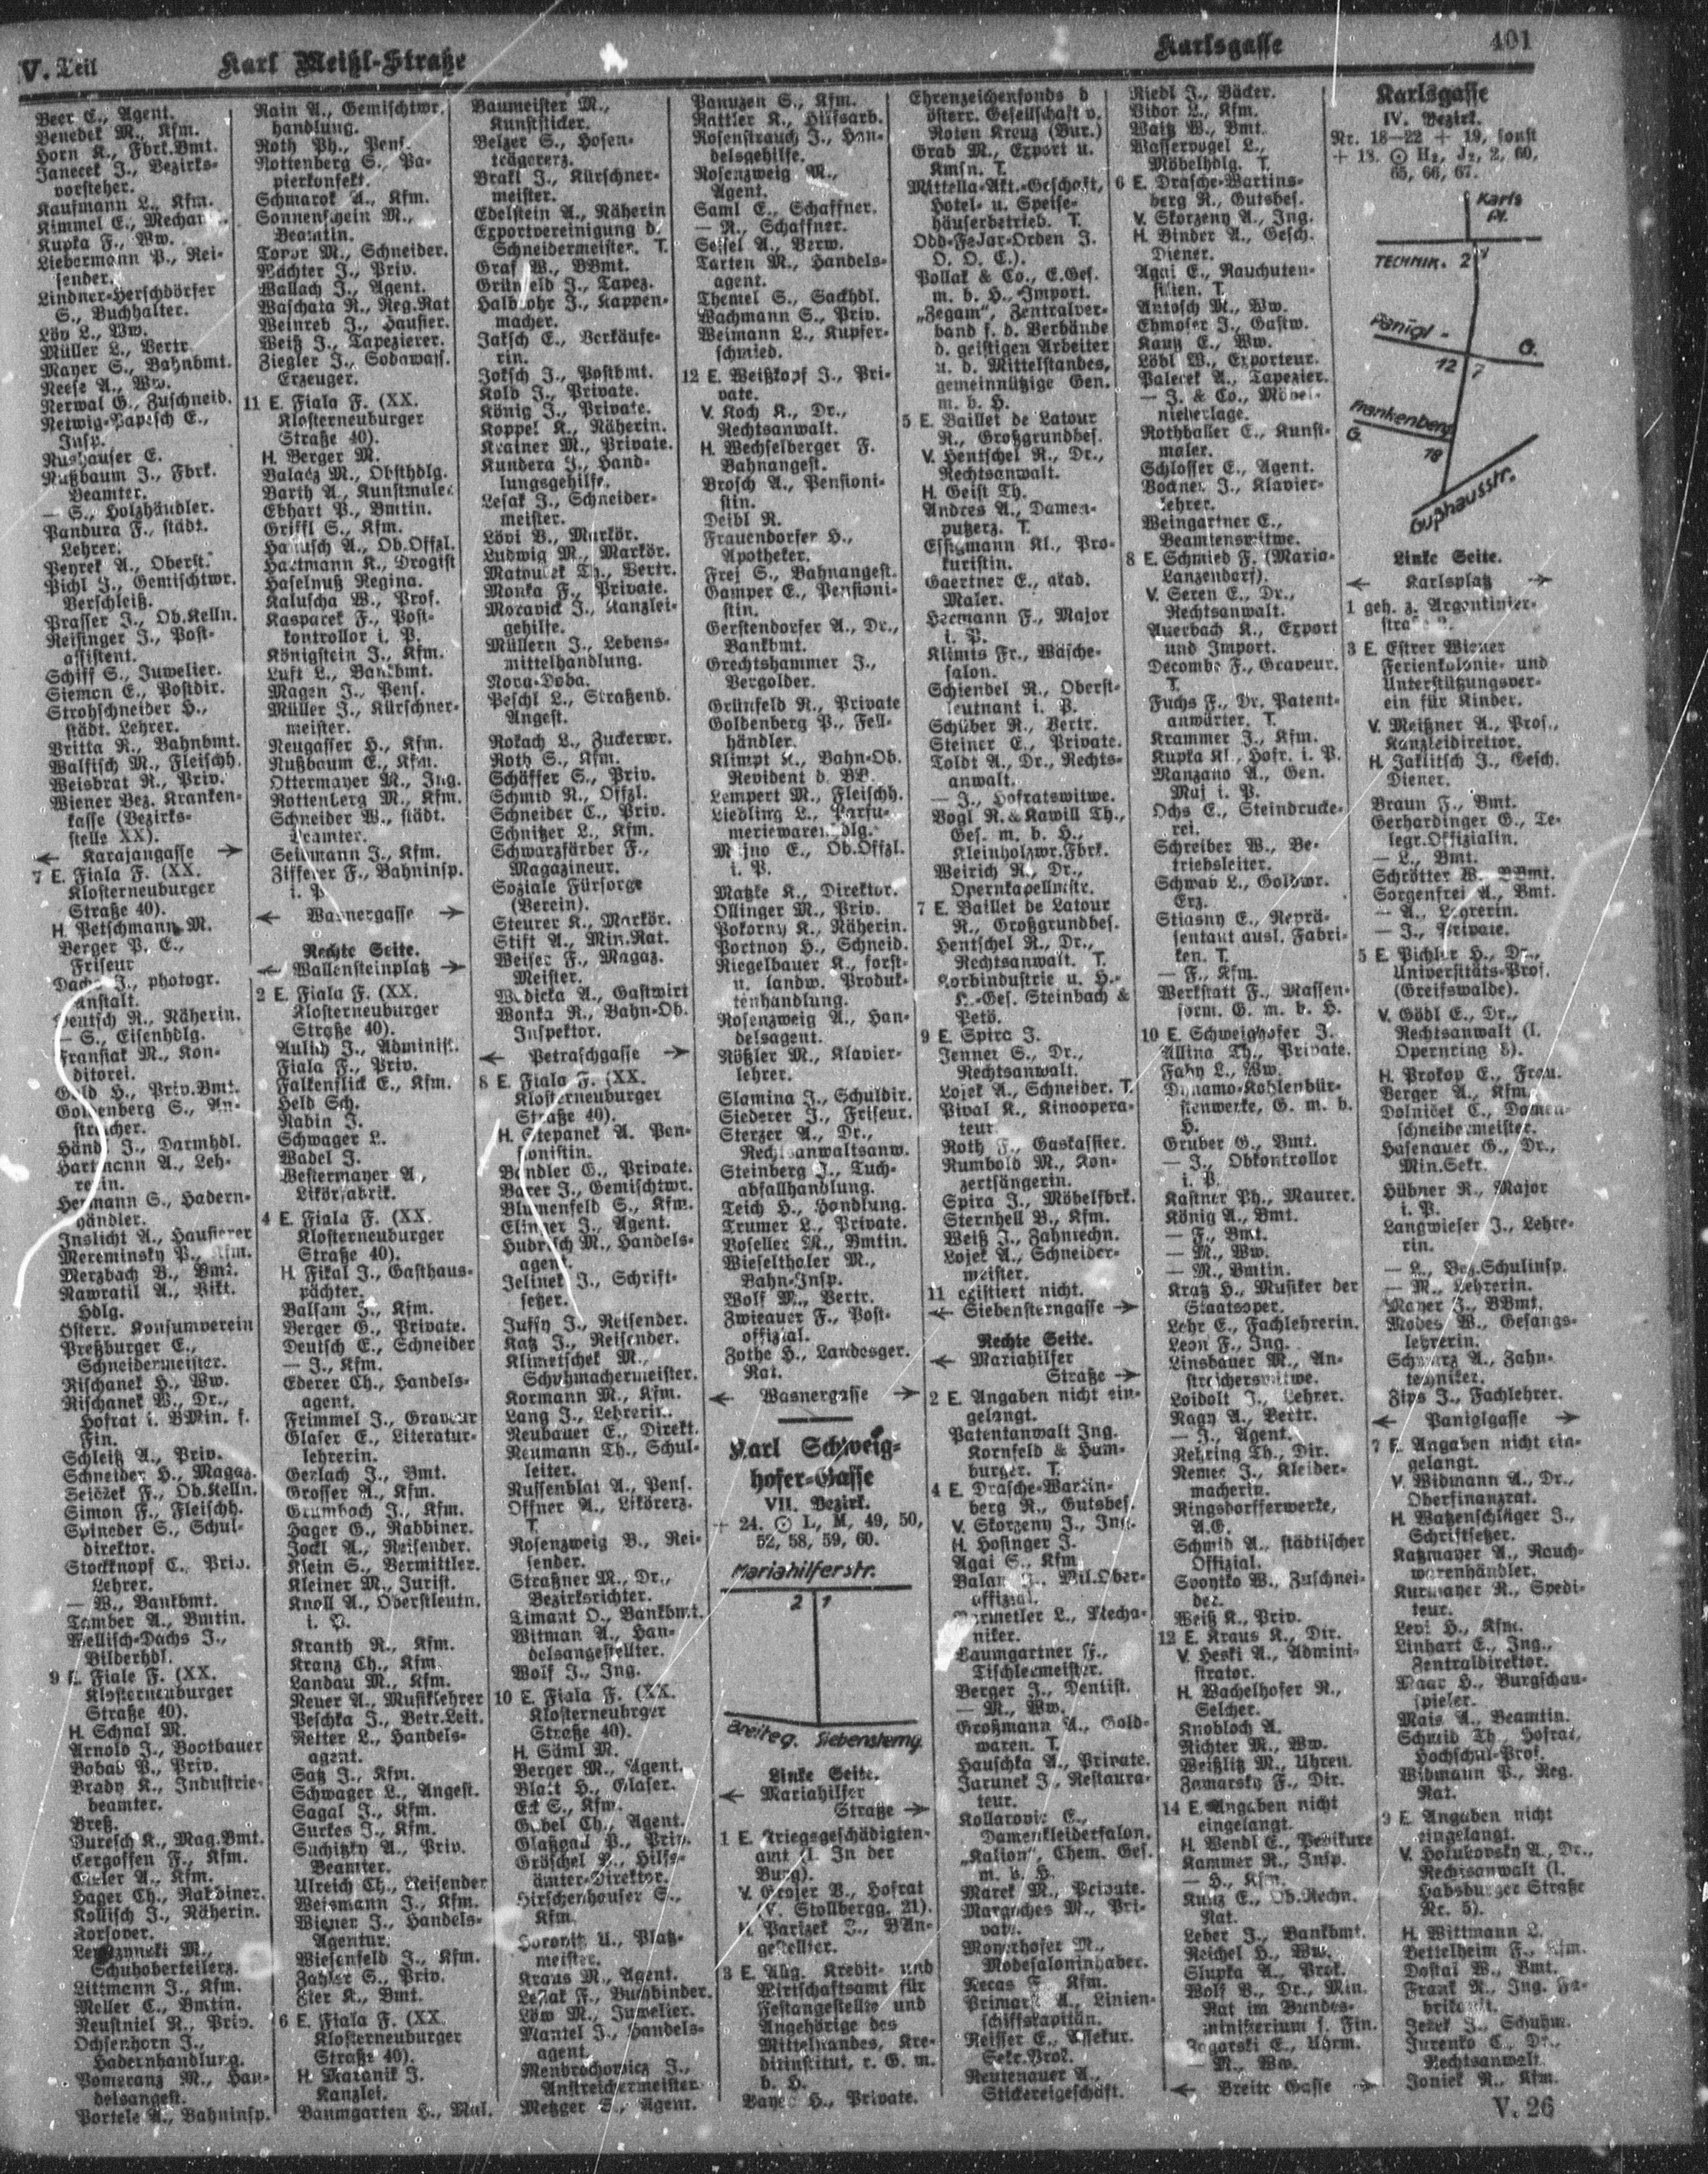 V. Teil
Karl Meißl-Straße
Karlsgasse
401
Beer C., Agent.
Benedek M., Kfm.
Horn K., Fbrk.Bmt.
Janecek J., Bezirks-
vorsteher.
Kaufmann L., Kfm.
Kimmel E., Mechan
Kupka F., Ww.
Liebermann P., Rei-
sender.
Lindner-Herschdörfer
S., Buchhalter.
Löv L., Ww.
Müller L., Vertr.
Mayer S., Bahnbmt.
Neese A., Ww.
Nerwal G., Zuschneid.
Netwig-Papesch E.,
Insp.
Nushauser E.
Nußbaum J., Fbrk.
Beamter.
— S., Holzhändler.
Pandura F., städt.
Lehrer.
Peyrek A., Oberst.
Pichl J., Gemischtwr.
Verschleiß.
Prasser J., Ob.Kelln.
Reisinger J., Post-
assistent.
Schiff S., Juwelier.
Siemon E., Postdir.
Strohschneider H.,
städt. Lehrer.
Vritta R., Bahnbmt.
Walfisch M., Fleischh.
Weisbrat R., Priv.
Wiener Bez. Kranken-
kasse (Bezirks-
stelle XX).
← Karajangasse →
7 E. Fiala F. (XX.
Klosterneuburger
Straße 40).
H. Petschmann M.
Berger P. E.,
Friseur
Dachs J., photogr.
Anstalt.
Deutsch R., Näherin.
— S., Eisenhdlg.
Fransiak M., Kon-
ditorei.
Gold H., Priv.Bmt.
Goldenberg S., An-
streicher.
Händ J., Darmhdl.
Hartmann A., Leh-
rerin.
Hermann S., Hadern-
händler.
Inslicht A., Hausierer
Mereminsky P., Kfm.
Merzbach B., Bmt.
Nawratil A., Vikt.
Hdlg.
Österr. Konsumverein
Preßburger E.,
Schneidermeister.
Rischanek H., Ww.
Rischanek W., Dr.,
Hofrat i. BMin. f.
Fin.
Schleiß A., Priv.
Schneider H., Magaz.
Seiczek F., Ob.Kelln.
Simon F., Fleischh.
Spineder S., Schul-
direktor.
Stockknopf C., Priv.
Lehrer.
— W., Bankbmt.
Tamber A., Bmtin.
Wellisch-Dachs J.,
Bilderhdl.
9 E. Fiale F. (XX.
Klosterneuburger
Straße 40).
H. Schnal M.
Arnold J., Bootbauer
Bobas P., Priv.
Brady K., Industrie-
beamter.
Breß.
Buresch K., Mag.Bmt.
Cergoffen F., Kfm.
A., Kfm.
Hager Ch., Rabbiner.
Kollisch J., Näherin.
Korsover.
M.,
Schuhoberteilerz.
Littmann J., Kfm.
Meller C., Bmtin.
Neustniel R., Priv.
Ochsenhorn J.,
Hadernhandlung.
Pomeranz M., Han-
delsangest.
Portele A., Bahninsp.
Rain A., Gemischtwr.
handlung.
Roth Ph., Pens.
Rottenberg S., Pa-
pierkonfekt.
Schmarok A., Kfm.
Sonnenschein M.,
Beamtin.
Topor M., Schneider.
Wächter J., Priv.
Wallach J., Agent.
Waschata R., Reg.Rat
Weinreb J., Hausier.
Weiß J., Tapezierer.
Ziegler J., Sodawass.
Erzeuger.
11 E. Fiala F. (XX.
Klosterneuburger
Straße 40).
H. Berger M.
Balacz M., Obsthdlg.
Barth A., Kunstmaler
Ebhart P., Bmtin.
Griffl S., Kfm.
Hanusch A., Ob.Offzl.
Hartmann K., Drogist
Haselnuß Regina.
Kaluscha W., Prof.
Kasparek F., Post-
kontrollor i. P.
Königstein J., Kfm.
Luft L., Bankbmt.
Magen J., Pens.
Müller J., Kürschner-
meister.
Neugasser H., Kfm.
Nußbaum E., Kfm.
Ottermayer M., Ing.
Rottenberg M., Kfm.
Schneider W., städt.
Beamter.
Seidmann J., Kfm.
Zifferer F., Bahninsp.
i. P.
← Wasnergasse →
Rechte Seite.
← Wallensteinplatz →
2 E. Fiala F. (XX.
Klosterneuburger
Straße 40).
Aulich J., Administ.
Fiala F., Priv.
Falkenflick E., Kfm.
Held Sch.
Rabin J.
Schwager L.
Wadel J.
Westermayer A.,
Likörfabrik.
4 E. Fiala F. (XX.
Klosterneuburger
Straße 40).
H. Fikal J., Gasthaus-
pächter.
Balsam J., Kfm.
Berger G., Private.
Deutsch E., Schneider
— J., Kfm.
Ederer Ch., Handels-
agent.
Frimmel J., Graveur
Glaser E., Literatur-
lehrerin.
Gerlach J., Bmt.
Grosser A., Kfm.
Grumbach J., Kfm.
Hager G., Rabbiner.
Jockl A., Reisender.
Klein S., Vermittler.
Kleiner M., Jurist.
Knoll A., Oberstleutn.
i. P.
Kranth R., Kfm.
Kranz Ch., Kfm.
Landau M., Kfm.
Neuer A., Musiklehrer
Peschka J., Betr.Leit.
Retter L., Handels-
agent.
Satz J., Kfm.
Schwager L., Angest.
Sagal J., Kfm.
Surkes J., Kfm.
Suchitzky A., Priv.
Beamter.
Ulreich Ch., Reisender
Weismann J., Kfm.
Wiener J., Handels-
Agentur.
Wiesenfeld J., Kfm.
Zahler S., Priv.
K., Bmt.
6 E. Fiala F. (XX
Klosterneuburger
Straße 40).
H. Matanik J.
Kanzlei.
Baumgarten H., Mal.
Baumeister M.,
Kunststicker.
Belzer S., Hosen-
trägererz.
Brakl J., Kürschner-
meister.
Edelstein A., Näherin
Exportvereinigung d.
Schneidermeister. T.
Graf W., BBmt.
Grünfeld J., Tapez.
Halblohr J., Kappen-
macher.
Jaksch E., Verkäufe-
rin.
Joksch J., Postbmt.
Kold J., Private.
König J., Private.
Koppel K., Näherin.
Krainer M., Private.
Kundera J., Hand-
lungsgehilfe.
Lesak J., Schneider-
meister.
Lövi B., Markör.
Ludwig M., Markör.
Matoulek Th., Vertr.
Monka F., Private.
Moravick J., Kanzlei-
gehilfe.
Müllern J., Lebens-
mittelhandlung.
Nova-Doba.
Peschl L., Straßenb.
Angest.
Rokach L., Zuckerwr.
Roth S., Kfm.
Schäffer S., Priv.
Schmid R., Offzl.
Schneider C., Priv.
Schnitzer L., Kfm.
Schwarzfärber F.,
Magazineur.
Soziale Fürsorge
(Verein).
Steurer K., Markör.
Stift A., Min.Rat.
Weiser F., Magaz.
Meister.
Wodicka A., Gastwirt
Wonka R., Bahn-Ob.
Inspektor.
← Petraschgasse →
8 E. Fiala F. (XX.
Klosterneuburger
Straße 40).
H. Stepanek A. Pen-
sionistin.
Bandler G., Private.
Barer J., Gemischtwr.
Blumenfeld S., Kfm.
Elinger J., Agent.
Hudresch M., Handels-
agent.
Jelinek J., Schrift-
setzer.
Jussy J., Reisender.
Katz J., Reisender.
Klimetschek M.,
Schuhmachermeister.
Kormann M., Kfm.
Lang J., Lehrerin.
Neubauer E., Direkt.
Neumann Th., Schul-
leiter.
Russenblat A., Pens.
Offner A., Likörerz.
T.
Rosenzweig B., Rei-
sender.
Straßner M., Dr.,
Bezirksrichter.
Timant O., Bankbmt.
Witman A., Han-
delsangestellter.
Wolf J., Ing.
10 E. Fiala F. (XX.
Klosterneuburger
Straße 40).
H. Säml M.
Berger M., Agent.
Blatt H., Glaser.
Eck S., Kfm.
Gabel Ch., Agent.
Glaßgau P., Priv.
Gröschel P., Hilfs-
ämter-Direktor.
Hirschenhauser S.,
Kfm.
Horovitz U., Platz-
meister.
Kraus M., Agent.
Lezak F., Buchbinder.
Löw M., Juwelier.
Mantel J., Handels-
agent.
Menbrochowicz J.,
Anstreichermeister
Metzger S., Agent.
Panuzen S., Kfm.
Rattler K., Hilfsarb.
Rosenstrauch J., Han-
delsgehilfe.
Rosenzweig M.,
Agent.
Saml E., Schaffner.
— R., Schaffner.
Seisel A., Verw.
Tarten M., Handels-
agent.
Themel S., Sackhdl.
Wachmann S., Priv.
Weimann L., Kupfer-
schmied.
12 E. Weißkopf J., Pri-
vate.
V. Koch K., Dr.,
Rechtsanwalt.
H. Wechselberger F.
Bahnangest.
Brosch A., Pensioni-
stin.
Deibl R.
Frauendorfer H.,
Apotheker.
Frej S., Bahnangest.
Gamper E., Pensioni-
stin.
Gerstendorfer A., Dr.,
Bankbmt.
Grechtshammer J.,
Vergolder.
Grünfeld R., Private
Goldenberg P., Fell-
händler.
Klimpt K., Bahn-Ob.
Revident d. BB.
Lempert M., Fleischh.
Liedling L., Parfü-
meriewarenhdlg.
E., Ob.Offzl.
i. P.
Matzke K., Direktor.
Ollinger M., Priv.
Pokorny K., Näherin.
Portnoy H., Schneid.
Riegelbauer K., forst-
u. landw. Produk-
tenhandlung.
Rosenzweig A., Han-
delsagent.
Rößler M., Klavier-
lehrer.
Slamina J., Schuldir.
Siederer J., Friseur.
Sterzer A., Dr.,
Rechtsanwaltsanw.
Steinberg J., Tuch-
abfallhandlung.
Teich H., Handlung.
Trumer L., Private.
Voseller M., Bmtin.
Wieselthaler M.,
Bahn-Insp.
Wolf M., Vertr.
Zwieauer F., Post-
offizial.
Zothe H., Landesger.
Rat.
← Wasnergasse →
Karl Schweig-
hofer-Gasse
VII. Bezirk.
+ 24. ⊙ L, M, 49, 50,
52, 58, 59, 60.
Mariahilferstr.
2 1
Breiteg. Siebensterng.
Linke Seite.
← Mariahilfer
Straße →
1 E. Kriegsgeschädigten-
amt (I. In der
Burg).
V. Grojer V., Hofrat
(V. Stollbergg. 21).
H. Parizek J., BAn-
gestellter.
3 E. Allg. Kredit- und
Wirtschaftsamt für
Festangestellte und
Angehörige des
Mittelstandes, Kre-
ditinstitut, r. G. m.
b. H.
Bayer H., Private.
Ehrenzeichenfonds d
österr. Gesellschaft v.
Roten Kreuz (Bur.)
Grab M., Export u.
Kmsn. T.
Mittella-Akt.-Geschäft,
Hotel- u. Speise-
häuserbetrieb. T.
Odd-Fellar-Orden J.
O. O. E.).
Pollak & Co., E.Ges.
m. b. H., Import.
„Zegam", Zentralver-
band f. d. Verbände
d. geistigen Arbeiter
u. d. Mittelstandes,
gemeinnützige Gen.
m. b. H.
5 E. Baillet de Latour
R., Großgrundbes.
V. Hentschel R., Dr.,
Rechtsanwalt.
H. Geist Th.
Andres A., Damen-
putzerz. T.
Essigmann Kl., Pro-
kuristin.
Gaertner E., akad.
Maler.
Hermann F., Major
i. P.
Klimis Fr., Wäsche-
salon.
Schiendel R., Oberst-
leutnant i. P.
Schüber R., Vertr.
Steiner E., Private.
Toldt A., Dr., Rechts-
anwalt.
— J., Hofratswitwe.
Vogl R. & Kawill Th.,
Ges. m. b. H.,
Kleinholzwr.Fbrk.
Weirich R., Dr.,
Opernkapellmstr.
7 E. Baillet de Latour
R., Großgrundbes.
Hentschel R., Dr.,
Rechtsanwalt. T.
Korbindustrie u. H.-
Ges. Steinbach &
Petö.
9 E. Spira J.
Jenner S., Dr.,
Rechtsanwalt.
Lojek A., Schneider. T.
Pival K., Kinoopera-
teur.
Roth F., Gaskassier.
Rumbold M., Kon-
zertsängerin.
Spira J., Möbelfbrk.
Sternhell B., Kfm.
Weiß J., Zahntechn.
Lojek A., Schneider-
meister.
11 existiert nicht.
← Siebensterngasse →
Rechte Seite.
← Mariahilfer
Straße →
2 E. Angaben nicht ein-
gelangt.
Patentanwalt Ing.
Kornfeld & Ham-
burger. T.
4 E. Drasche-Wartin-
berg R., Gutsbes.
V. Skorzeny J., Ing.
H. Hofinger J.
Agai S., Kfm.
Balan Mil.Ober-
offizial.
L., Mecha-
niker.
Baumgartner F.,
Tischlermeister.
Berger J., Dentist.
— M., Ww.
Großmann A., Gold-
waren. T.
Hauschka A., Private.
Jarunek J., Restaura-
teur.
Kollarovic E.,
Damenkleidersalon.
„Kalion", Chem. Ges.
m. b. H.
Marek M., Private.
Margoches M., Pri-
vate.
Mayerhofer M.,
Modesaloninhaber.
Necas F. Kfm.
Primar A., Linien-
schiffskapitän.
Reisser E., Assekur.
Sekr.Prok.
Reutenauer A.,
Stickereigeschäft.
Riedl J., Bäcker.
Vidor L., Kfm.
Waitz W., Bmt.
Wasservogel L.,
Möbelhdlg. T.
6 E. Drasche-Wartins-
berg R., Gutsbes.
V. Skorzeny A., Ing.
H. Binder A., Gesch.
Diener.
Agai E., Rauchuten-
silien. T.
Antosch M., Ww.
Ehmoser J., Gastw.
Kautz E., Ww.
Löbl W., Exporteur.
Palecek A., Tapezier.
— J. & Co., Möbel-
niederlage.
Rothballer E., Kunst-
maler.
Schlosser E., Agent.
Vockner J., Klavier-
lehrer.
Weingartner E.,
Beamtenswitwe.
8 E. Schmied F. (Maria-
Lanzendorf).
V. Seren E., Dr.,
Rechtsanwalt.
Auerbach K., Export
und Import.
Decombe F., Graveur.
T.
Fuchs F., Dr. Patent-
anwärter. T.
Krammer J., Kfm.
Kupka Kl., Hofr. i. P.
Manzano A., Gen.
Maj i. P.
Ochs E., Steindrucke-
rei.
Schreiber W., Be-
triebsleiter.
Schwab L., Goldwr.
Erz.
Stiasny E., Reprä-
sentant ausl. Fabri-
ken. T.
— F., Kfm.
Werkstatt F., Massen-
form. G. m. b. H.
10 E. Schweighofer J.
Allina Th., Private.
Faby L., Ww.
Dynamo-Kohlenbür-
stenwerke, G. m. b.
H.
Gruber G., Bmt.
— J., Obkontrollor
i. P.
Kastner Ph., Maurer.
König A., Bmt.
— F., Bmt.
— M., Ww.
— M., Bmtin.
Kratz H., Musiker der
Staatsoper.
Lehr E., Fachlehrerin.
Leon F., Ing.
Linsbauer M., An-
streicherswitwe.
Loidolt J., Lehrer.
Nagy A., Vertr.
— J., Agent.
Nehring Th., Dir.
Nemec J., Kleider-
macherin.
Ringsdorfferwerke,
A.G.
Schmid A., städtischer
Offizial.
Svoytko W., Zuschnei-
der.
Weiß K., Priv.
12 E. Kraus K., Dir.
V. Heski A., Admini-
strator.
H. Wachelhofer R.,
Selcher.
Knobloch A.
Richter M., Ww.
Weißlitz M., Uhren.
Zamarsky F., Dir.
14 E. Angaben nicht
eingelangt.
H. Wendl E., Pedikure
Kammer R., Insp.
— H., Kfm.
Kunz E., Ob.Rechn.
Rat.
Leber J., Bankbmt.
Reichel H., Ww.
Slupka A., Prok.
Wolf B., Dr., Min.
Rat im Bundes-
ministerium f. Fin.
Zagarski E., Uhrm.
— M., Ww.
← Breite Gasse →
Karlsgasse
IV. Bezirk.
Nr. 18—22 + 19, sonst
+ 18. ⊙ H₂, J₂, 2, 60,
65, 66, 67.
Karls
Pl.
TECHNIK. 2 1
Panigl - G.
12 7
Frankenberg
G.
18
Gußhausstr.
Linke Seite.
← Karlsplatz →
1 geh. z. Argentinier-
straße 2.
3 E. Erster Wiener
Ferienkolonie- und
Unterstützungsver-
ein für Kinder.
V. Meißner A., Prof.,
Kanzleidirektor.
H. Jaklitsch J., Gesch.
Diener.
Braun F., Bmt.
Gerhardinger G., Te-
legr.Offizialin.
— L., Bmt.
Schrötter W. BBmt.
Sorgenfrei A., Bmt.
— A., Lehrerin.
— J., Private.
5 E. Pichler H., Dr.,
Universitäts-Prof.
(Greifswalde).
V. Göbl E., Dr.,
Rechtsanwalt (I.
Opernring 8).
H. Prokop E., Frau.
Berger A., Kfm.
Dolnicek C., Damen-
schneidermeister.
Hasenauer G., Dr.,
Min.Sekr.
Hübner R., Major
i. P.
Langwieser J., Lehre-
rin.
— L., Bez.Schulinsp.
— M., Lehrerin.
Mayer J., BBmt.
Modes W., Gesangs-
lehrerin.
Schwarz A., Zahn-
techniker.
Zips J., Fachlehrer.
← Paniglgasse →
7 E. Angaben nicht ein-
gelangt.
V. Widmann A., Dr.,
Oberfinanzrat.
H. Watzenschläger J.,
Schriftsetzer.
Katzmayer A., Rauch-
warenhändler.
Kurmayer R., Spedi-
teur.
Levi H., Kfm.
Linhart E., Ing.,
Zentraldirektor.
Maar H., Burgschau-
spieler.
Mais A., Beamtin.
Schmid Th., Hofrat,
Hochschul-Prof.
Widmann P., Reg.
Rat.
9 E. Angaben nicht
eingelangt.
V. Holubovsky A., Dr.,
Rechtsanwalt (I.
Habsburger Straße
Nr. 5).
H. Wittmann L.
Bettelheim F., Kfm.
Dostal W., Bmt.
Frank R., Ing. Fa-
brikant.
Jezek J., Schuhm.
Jurenko C., Dr.,
Rechtsanwalt.
Joniek R., Kfm.
V. 26